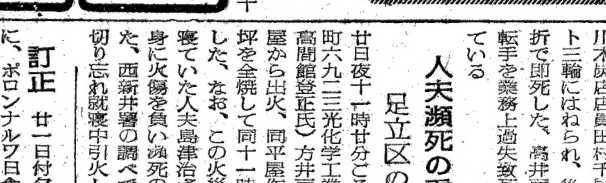 川木味店店員田村
ト三輪にはねられ、
折で即死した。高井
転手を業務上過失致
ている
人夫瀕死の
足立区の
廿日夜十一時廿分ご
町六九二三光化学工業
高間館登正氏）方井
屋から出火、同平屋
坪を全焼して同十一時
した、なお、この火
寝ていた人夫島津治
身に火傷を負い瀕死の
た、西新井署の調べで
切り忘れ就寝中引火し
訂正
廿一日付
に、ポロンナルワ日食